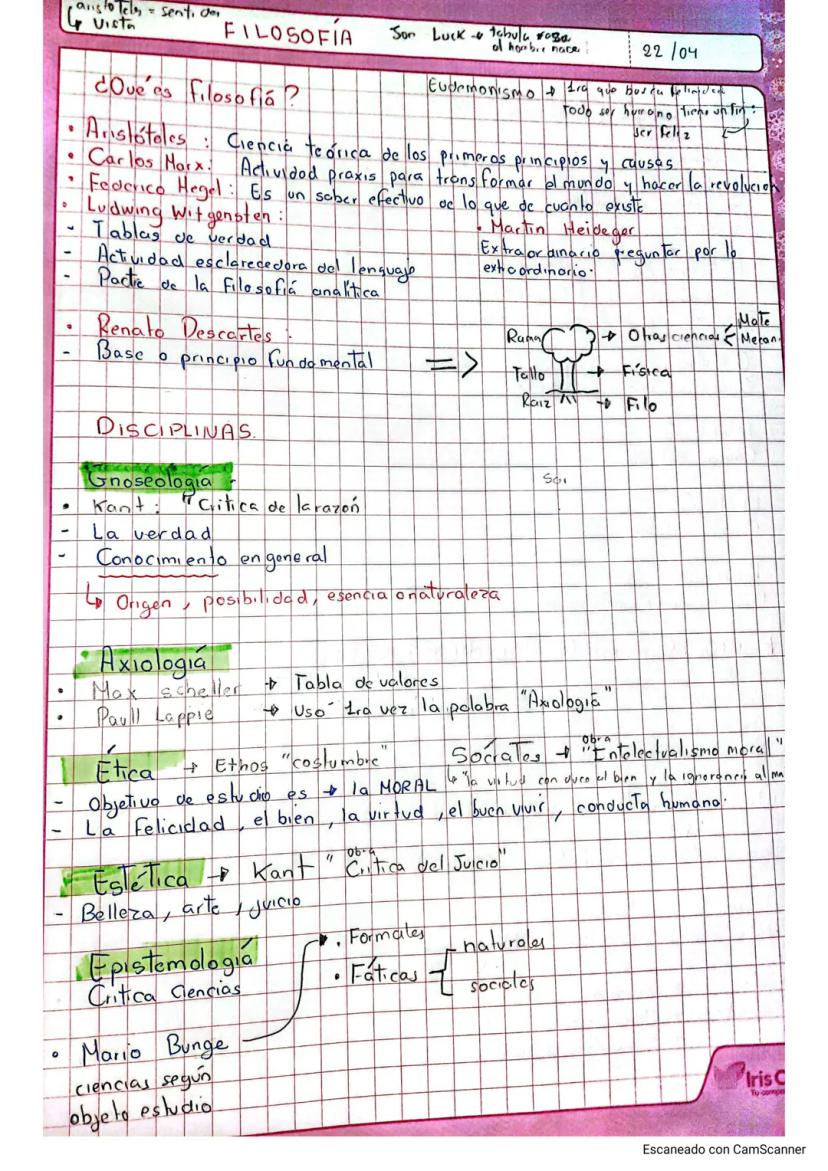 aristotels = sentidos
↳ vista
FILOSOFÍA
Jon Luck → tabula rasa
el hombre nace:
22/04
¿Qué es filosofiá?
Eudemonismo → 1ra que busca felicidad
Todo ser humano tiene un fin:
ser feliz
• Aristóteles : Ciencia teórica de los primeros principios y causas
• Carlos Marx: Actividad praxis para transformar el mundo y hacer la revolución
• Federico Hegel: Es un saber efectivo de lo que de cuanto existe
• Ludwing Witgensten:
- Tablas de verdad
- Actividad esclarecedora del lenguaje
- Padre de la Filosofiá analítica
• Martin Heideger
Extraordinario preguntar por lo
extraordinario.
• Renato Descartes:
- Base o principio fundamental
=>
Rama → Otras ciencias < Mate
Mecan
Tallo → Física
Raiz → Filo
DISCIPLINAS.
Gnoseologiá
• Kant: "Critica de la razón
- La verdad
- Conocimiento en general
↳ Origen, posibilidad, esencia o naturaleza
• Axiologiá
• Max scheller → Tabla de valores
• Paull Lappie → Uso 1ra vez la palabra "Axiologiá"
Ética → Ethos "costumbre"
Sócrates → obra "Entelectualismo moral"
↳ "la virtud conduce el bien y la ignorancia al ma
- Objetivo de estudio es → la MORAL
- La Felicidad, el bien, la virtud, el buen vivir, conducta humana.
Estética → Kant obra "Critica del Juicio"
- Belleza, arte, juicio
Epistemologiá
Critica Ciencias
• Formales
• Fáticas
naturales
sociales
• Mario Bunge
ciencias según
objeto estudio
Iris C
Escaneado con CamScanner